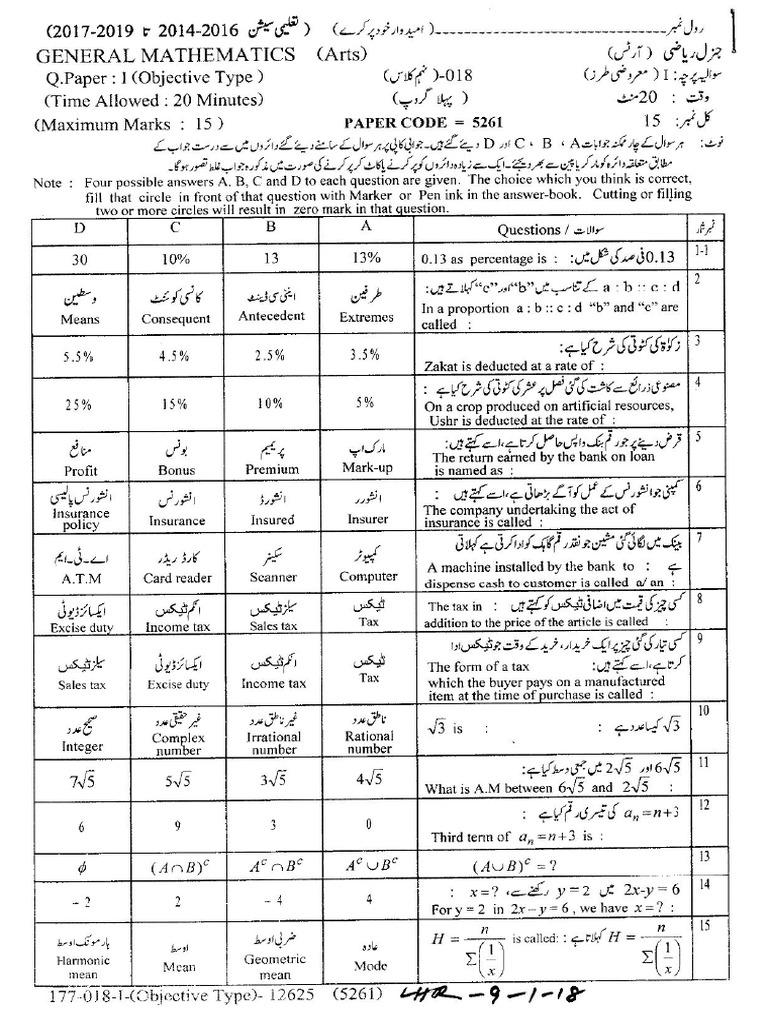 رول نمبر ---------------------------(امیدوار خود پر کرے) (تعلیمی سیشن 2016-2014 تا 2019-2017)
جنرل ریاضی (آرٹس) GENERAL MATHEMATICS (Arts)
سوالیہ پرچہ : I (معروضی طرز) 018-(نہم کلاس) Q.Paper : I (Objective Type )
وقت : 20 منٹ (پہلا گروپ) (Time Allowed : 20 Minutes)
کل نمبر : 15 PAPER CODE = 5261 (Maximum Marks : 15 )
نوٹ : ہر سوال کے چار ممکنہ جوابات A ، B ، C اور D دیئے گئے ہیں۔ جوابی کاپی پر ہر سوال کے سامنے دیئے گئے دائروں میں سے درست جواب کے
مطابق متعلقہ دائرہ کو مارکر یا پین سے بھر دیجئے۔ ایک سے زیادہ دائروں کو پر کرنے یا کاٹ کر پر کرنے کی صورت میں مذکورہ جواب غلط تصور ہوگا۔
Note : Four possible answers A, B, C and D to each question are given. The choice which you think is correct,
fill that circle in front of that question with Marker or Pen ink in the answer-book. Cutting or filling
two or more circles will result in zero mark in that question.
D C B A Questions / سوالات نمبر شمار
30 10% 13 13% 0.13 as percentage is : 0.13 فی صد کی شکل میں: 1-1
وسطین کانسی کوئنٹ اینٹی سی ڈینٹ طرفین a : b :: c : d کے تناسب میں "b" اور "c" کہلاتے ہیں: 2
Means Consequent Antecedent Extremes In a proportion a : b :: c : d "b" and "c" are
called :
زکوٰۃ کی کٹوتی کی شرح کیا ہے : 3
5.5% 4.5% 2.5% 3.5% Zakat is deducted at a rate of :
مصنوعی ذرائع سے کاشت کی گئی فصل پر عشر کی کٹوتی کی شرح کیا ہے : 4
25% 15% 10% 5% On a crop produced on artificial resources,
Ushr is deducted at the rate of :
منافع بونس پریمیم مارک اپ قرض دینے پر جو رقم بنک واپس حاصل کرتا ہے، اسے کہتے ہیں: 5
Profit Bonus Premium Mark-up The return earned by the bank on loan
is named as :
انشورنس پالیسی انشورنس انشورڈ انشورر کمپنی جو انشورنس کے عمل کو آگے بڑھاتی ہے، اسے کہتے ہیں : 6
Insurance policy Insurance Insured Insurer The company undertaking the act of
insurance is called :
اے-ٹی-ایم کارڈ ریڈر سکینر کمپیوٹر بینک میں لگائی گئی مشین جو نقد رقم گاہک کو ادا کرتی ہے کہلاتی 7
A.T.M Card reader Scanner Computer A machine installed by the bank to : ہے
dispense cash to customer is called a/ an :
ایکسائز ڈیوٹی انکم ٹیکس سیلز ٹیکس ٹیکس The tax in : کسی چیز کی قیمت میں اضافی ٹیکس کو کہتے ہیں 8
Excise duty Income tax Sales tax Tax addition to the price of the article is called :
سیلز ٹیکس ایکسائز ڈیوٹی انکم ٹیکس ٹیکس کسی تیار کی گئی چیز پر ایک خریدار، خرید کے وقت جو ٹیکس ادا 9
The form of a tax کرتا ہے، اسے کہتے ہیں:
Sales tax Excise duty Income tax Tax which the buyer pays on a manufactured
item at the time of purchase is called :
صحیح عدد غیر حقیقی عدد غیر ناطق عدد ناطق عدد √3 is : √3 کیسا عدد ہے : 10
Integer Complex number Irrational number Rational number
6√5 اور 2√5 میں جمعی وسط کیا ہے: 11
7√5 5√5 3√5 4√5 What is A.M between 6√5 and 2√5 :
aₙ = n+3 کی تیسری رقم کیا ہے : 12
6 9 3 0 Third term of aₙ = n+3 is :
ϕ (A∩B)ᶜ Aᶜ∩Bᶜ Aᶜ∪Bᶜ (A∪B)ᶜ = ? 13
2x-y = 6 میں y = 2 رکھنے سے، x = ? : 14
– 2 2 – 4 4 For y = 2 in 2x – y = 6 , we have x = ? :
ہارمونک اوسط اوسط ضربی اوسط عادہ H = n/Σ(1/x) is called: : کہلاتا ہے H = n/Σ(1/x) 15
Harmonic mean Mean Geometric mean Mode
177-018-I-(Objective Type)- 12625 (5261) LHR-9-1-18